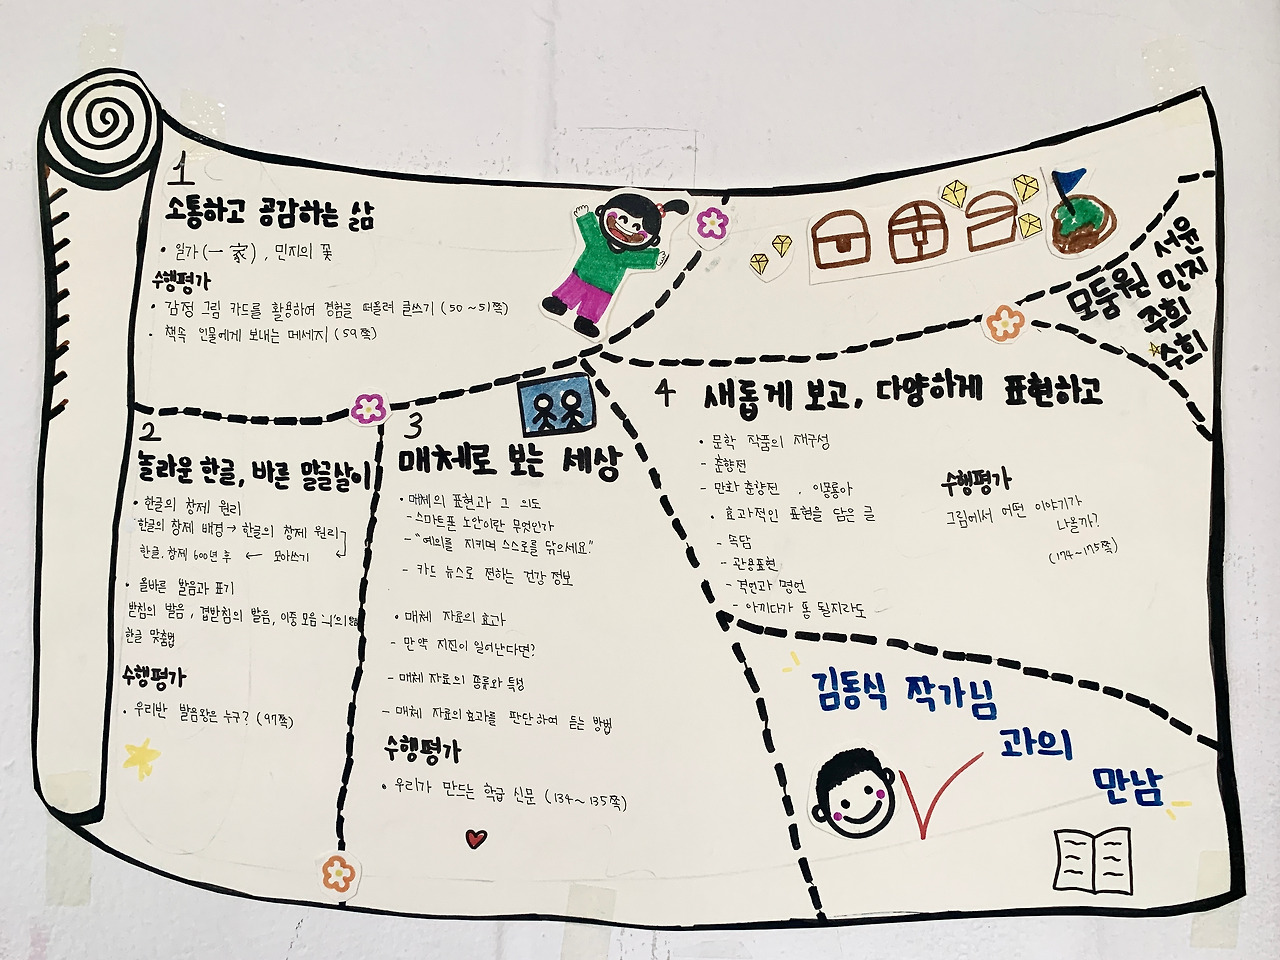 1
소통하고 공감하는 삶
• 일가(一家), 민지의 꽃
수행평가
• 감정 그림 카드를 활용하여 경험을 떠올려 글쓰기 (50~51쪽)
• 책속 인물에게 보내는 메세지 (59쪽)
모둠원 서윤
민지
주희
수희
2
놀라운 한글, 바른 말글살이
• 한글의 창제 원리
한글의 창제 배경 → 한글의 창제 원리
한글, 창제 600년 후 ← 모아쓰기
• 올바른 발음과 표기
받침의 발음, 겹받침의 발음, 이중 모음 'ㅢ'의 발음
한글 맞춤법
수행평가
• 우리반 발음왕은 누구? (97쪽)
3
매체로 보는 세상
• 매체의 표현과 그 의도
- 스마트폰 노안이란 무엇인가
- "예의를 지키며 스스로를 닦으세요."
- 카드 뉴스로 전하는 건강 정보
• 매체 자료의 효과
- 만약 지진이 일어난다면?
- 매체 자료의 종류와 특성
- 매체 자료의 효과를 판단하여 듣는 방법
수행평가
• 우리가 만드는 학급 신문 (134~135쪽)
4 새롭게 보고, 다양하게 표현하고
• 문학 작품의 재구성
- 춘향전
- 만화 춘향전, 이몽룡아
• 효과적인 표현을 담은 글
- 속담
- 관용표현
- 격언과 명언
- 아끼다가 똥 될지라도
수행평가
그림에서 어떤 이야기가
나올까?
(174~175쪽)
김동식 작가님
과의
만남